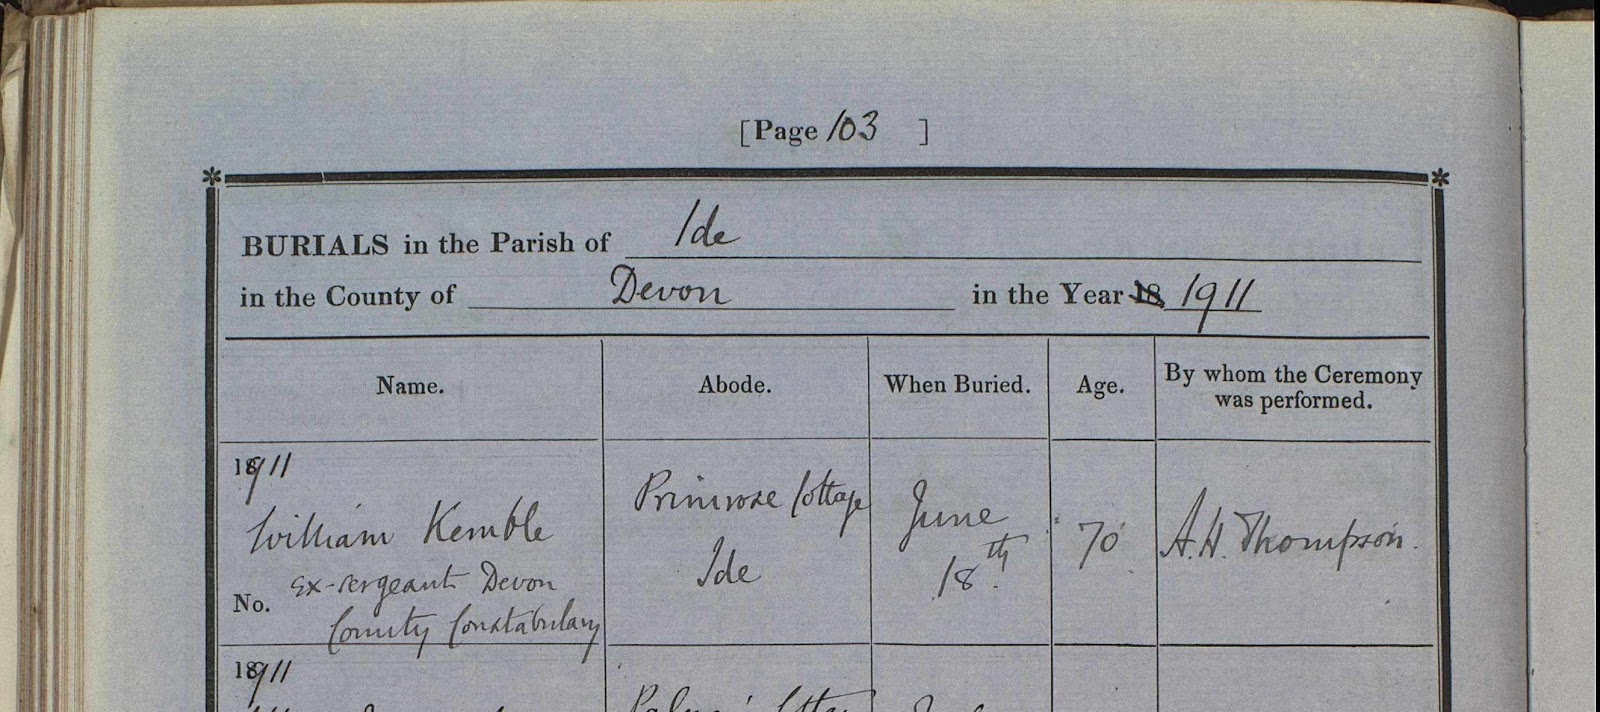 [Page 103 ]
BURIALS in the Parish of Ide
in the County of Devon in the Year 18 1911
Name. Abode. When Buried. Age. By whom the Ceremony was performed.
1911
William Kemble
ex-sergeant Devon
County Constabulary
No.
Primrose Cottage
Ide
June
18th.
70
A.H. Thompson.
1911